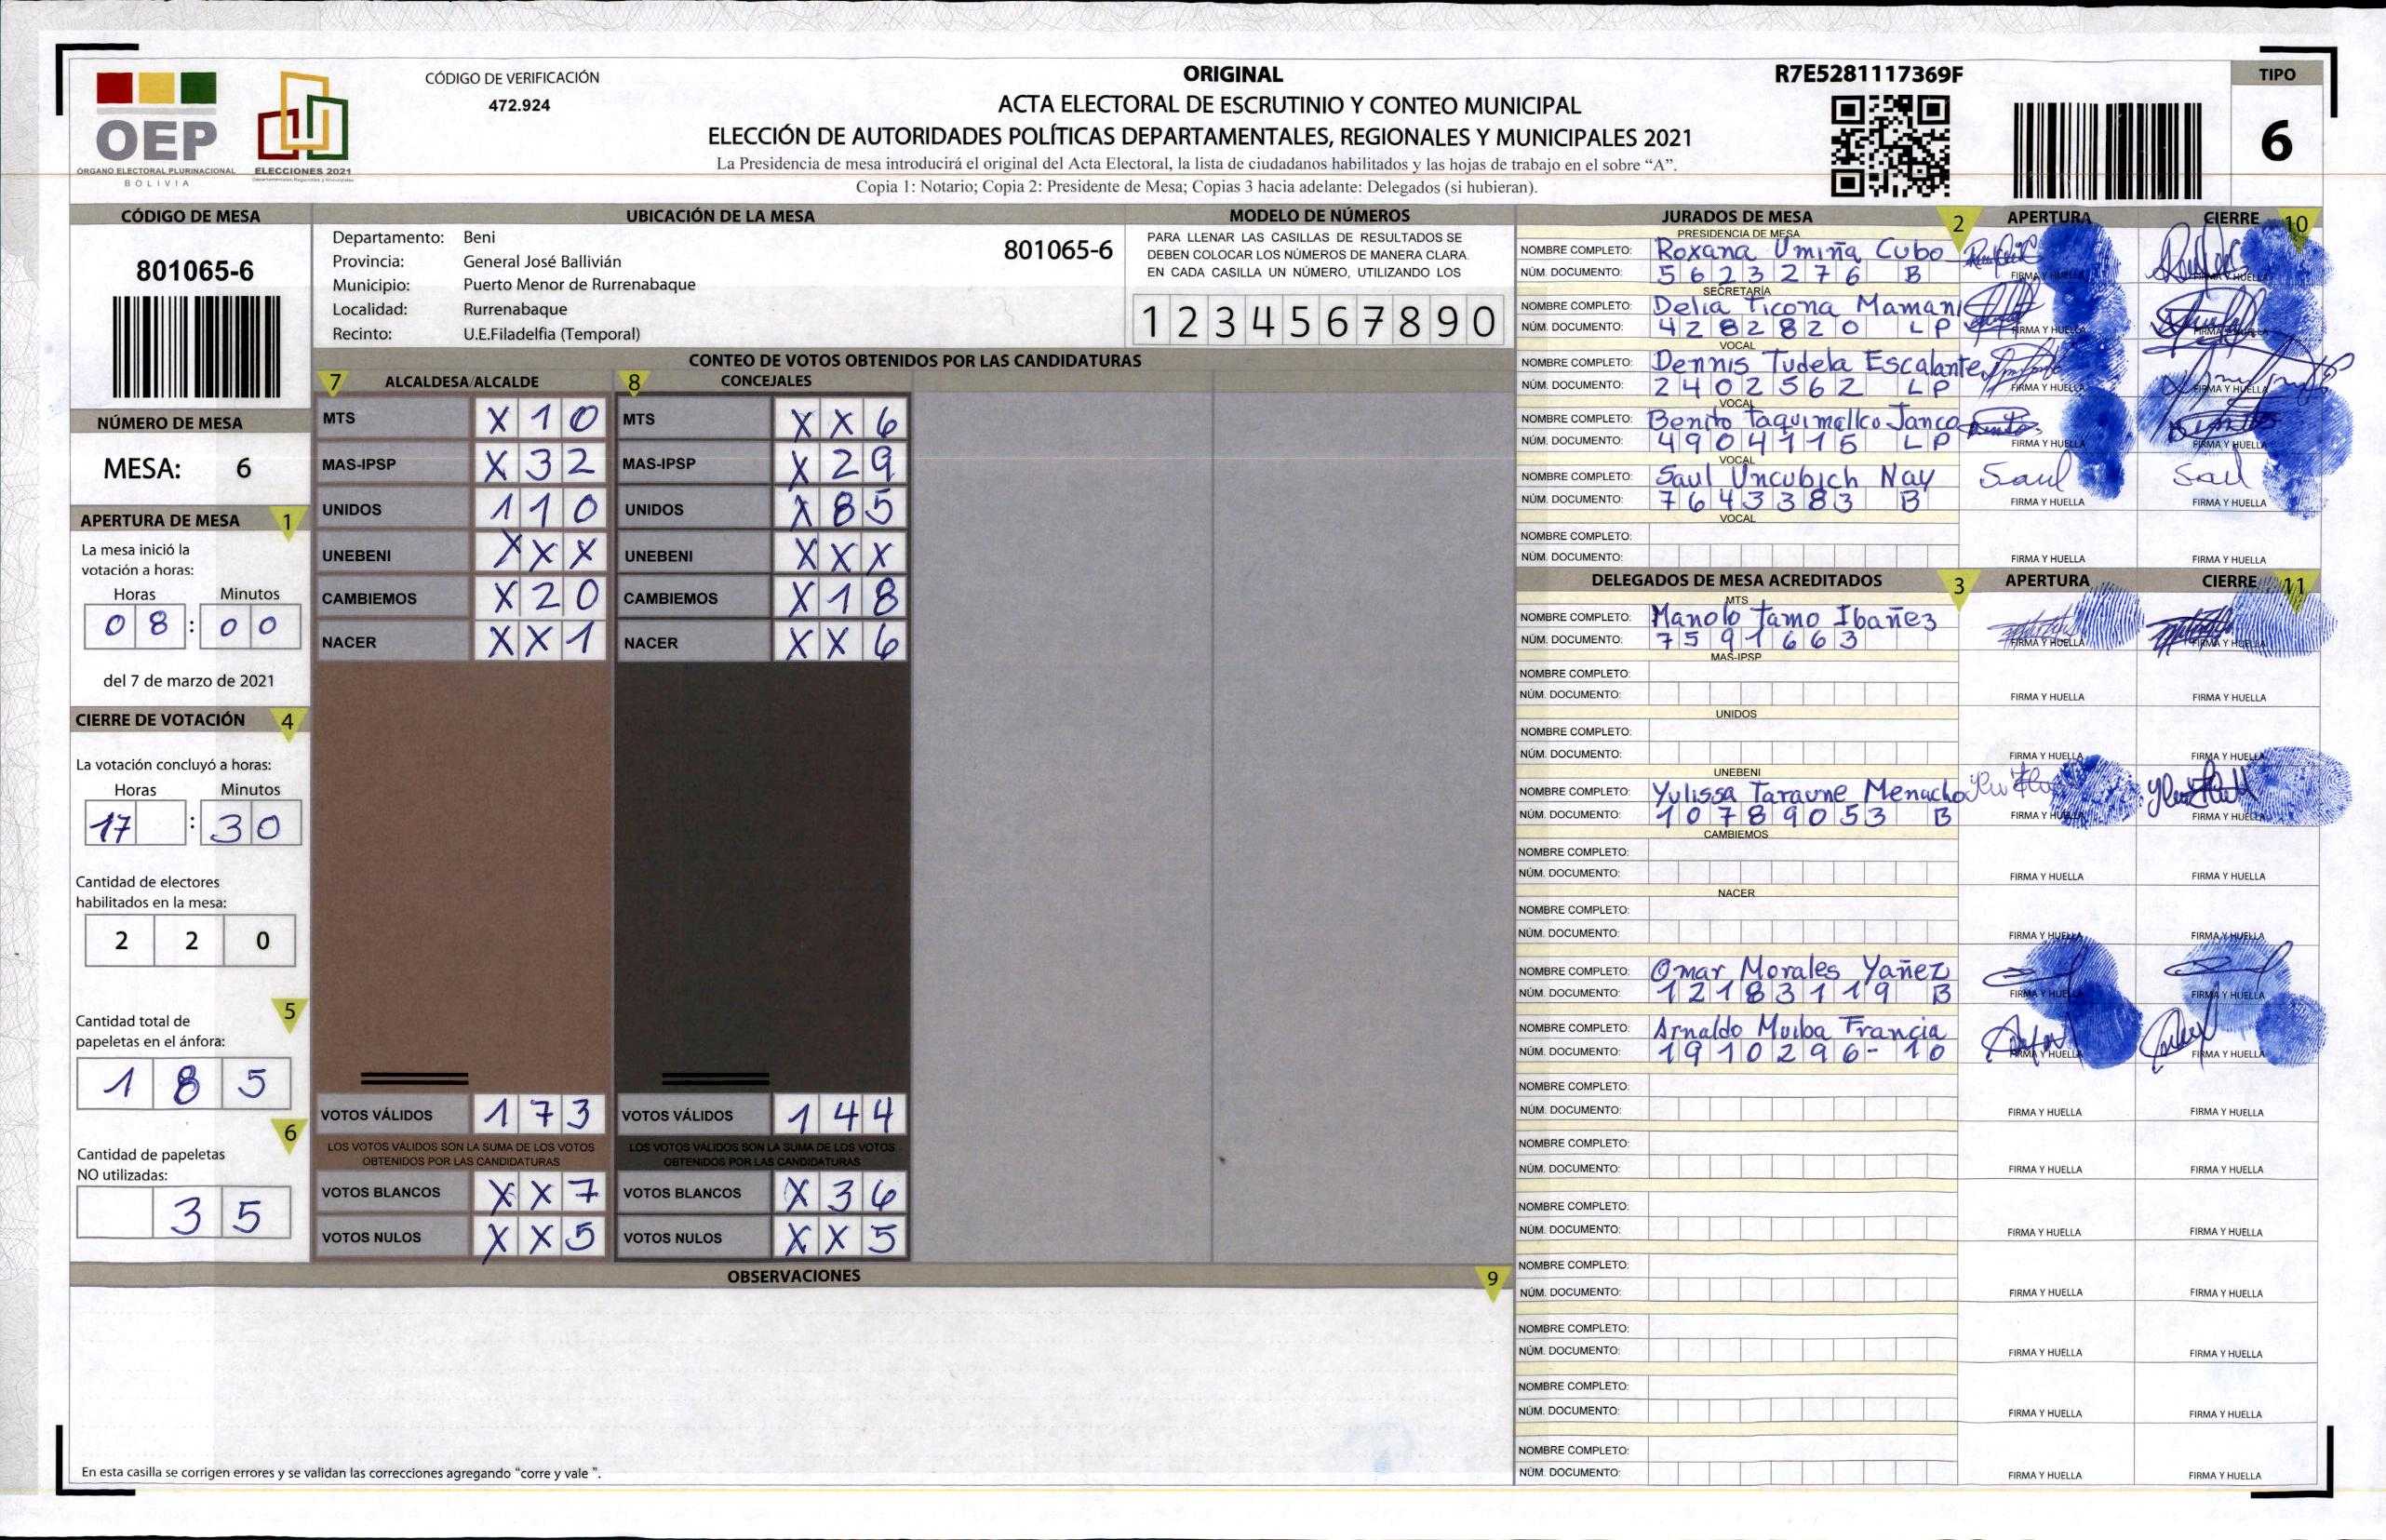 OEP
ÓRGANO ELECTORAL PLURINACIONAL
BOLIVIA
ELECCIONES 2021
CÓDIGO DE VERIFICACIÓN
472.924
ORIGINAL
ACTA ELECTORAL DE ESCRUTINIO Y CONTEO MUNICIPAL
ELECCIÓN DE AUTORIDADES POLÍTICAS DEPARTAMENTALES, REGIONALES Y MUNICIPALES 2021
La Presidencia de mesa introducirá el original del Acta Electoral, la lista de ciudadanos habilitados y las hojas de trabajo en el sobre “A”.
Copia 1: Notario; Copia 2: Presidente de Mesa; Copias 3 hacia adelante: Delegados (si hubieran).
R7E5281117369F
TIPO
6
CÓDIGO DE MESA
801065-6
NÚMERO DE MESA
MESA: 6
APERTURA DE MESA 1
La mesa inició la
votación a horas:
Horas Minutos
08 : 00
del 7 de marzo de 2021
CIERRE DE VOTACIÓN 4
La votación concluyó a horas:
Horas Minutos
17 : 30
Cantidad de electores
habilitados en la mesa:
2 2 0
5
Cantidad total de
papeletas en el ánfora:
1 8 5
6
Cantidad de papeletas
NO utilizadas:
3 5
UBICACIÓN DE LA MESA
Departamento: Beni
801065-6
Provincia: General José Ballivián
Municipio: Puerto Menor de Rurrenabaque
Localidad: Rurrenabaque
Recinto: U.E.Filadelfia (Temporal)
MODELO DE NÚMEROS
PARA LLENAR LAS CASILLAS DE RESULTADOS SE
DEBEN COLOCAR LOS NÚMEROS DE MANERA CLARA.
EN CADA CASILLA UN NÚMERO, UTILIZANDO LOS
1 2 3 4 5 6 7 8 9 0
CONTEO DE VOTOS OBTENIDOS POR LAS CANDIDATURAS
7 ALCALDESA/ALCALDE 8 CONCEJALES
MTS X10 MTS XX6
MAS-IPSP X32 MAS-IPSP X29
UNIDOS 110 UNIDOS X85
UNEBENI XXX UNEBENI XXX
CAMBIEMOS X20 CAMBIEMOS X18
NACER XX1 NACER XX6
VOTOS VÁLIDOS 173 VOTOS VÁLIDOS 144
LOS VOTOS VÁLIDOS SON LA SUMA DE LOS VOTOS LOS VOTOS VÁLIDOS SON LA SUMA DE LOS VOTOS
OBTENIDOS POR LAS CANDIDATURAS OBTENIDOS POR LAS CANDIDATURAS
VOTOS BLANCOS XX7 VOTOS BLANCOS X36
VOTOS NULOS XX5 VOTOS NULOS XX5
OBSERVACIONES 9
En esta casilla se corrigen errores y se validan las correcciones agregando “corre y vale ”.
JURADOS DE MESA 2 APERTURA CIERRE 10
PRESIDENCIA DE MESA
NOMBRE COMPLETO: Roxana Umiña Cubo
NÚM. DOCUMENTO: 5623276 B FIRMA Y HUELLA FIRMA Y HUELLA
SECRETARÍA
NOMBRE COMPLETO: Delia Ticona Mamani
NÚM. DOCUMENTO: 4282820 LP FIRMA Y HUELLA FIRMA Y HUELLA
VOCAL
NOMBRE COMPLETO: Dennis Tudela Escalante
NÚM. DOCUMENTO: 2402562 LP FIRMA Y HUELLA FIRMA Y HUELLA
VOCAL
NOMBRE COMPLETO: Benito Taquimallco Janco
NÚM. DOCUMENTO: 4904115 LP FIRMA Y HUELLA FIRMA Y HUELLA
VOCAL
NOMBRE COMPLETO: Saul Uncubich Nay Saul Saul
NÚM. DOCUMENTO: 7643383 B FIRMA Y HUELLA FIRMA Y HUELLA
VOCAL
NOMBRE COMPLETO:
NÚM. DOCUMENTO: FIRMA Y HUELLA FIRMA Y HUELLA
DELEGADOS DE MESA ACREDITADOS 3 APERTURA CIERRE 11
MTS
NOMBRE COMPLETO: Manolo Tamo Ibañez
NÚM. DOCUMENTO: 7591663 FIRMA Y HUELLA FIRMA Y HUELLA
MAS-IPSP
NOMBRE COMPLETO:
NÚM. DOCUMENTO: FIRMA Y HUELLA FIRMA Y HUELLA
UNIDOS
NOMBRE COMPLETO:
NÚM. DOCUMENTO: FIRMA Y HUELLA FIRMA Y HUELLA
UNEBENI
NOMBRE COMPLETO: Yulissa Taraune Menacho
NÚM. DOCUMENTO: 10789053 B FIRMA Y HUELLA FIRMA Y HUELLA
CAMBIEMOS
NOMBRE COMPLETO:
NÚM. DOCUMENTO: FIRMA Y HUELLA FIRMA Y HUELLA
NACER
NOMBRE COMPLETO:
NÚM. DOCUMENTO: FIRMA Y HUELLA FIRMA Y HUELLA
NOMBRE COMPLETO: Omar Morales Yañez
NÚM. DOCUMENTO: 12183119 B FIRMA Y HUELLA FIRMA Y HUELLA
NOMBRE COMPLETO: Arnaldo Muiba Francia
NÚM. DOCUMENTO: 1910296-10 FIRMA Y HUELLA FIRMA Y HUELLA
NOMBRE COMPLETO:
NÚM. DOCUMENTO: FIRMA Y HUELLA FIRMA Y HUELLA
NOMBRE COMPLETO:
NÚM. DOCUMENTO: FIRMA Y HUELLA FIRMA Y HUELLA
NOMBRE COMPLETO:
NÚM. DOCUMENTO: FIRMA Y HUELLA FIRMA Y HUELLA
NOMBRE COMPLETO:
NÚM. DOCUMENTO: FIRMA Y HUELLA FIRMA Y HUELLA
NOMBRE COMPLETO:
NÚM. DOCUMENTO: FIRMA Y HUELLA FIRMA Y HUELLA
NOMBRE COMPLETO:
NÚM. DOCUMENTO: FIRMA Y HUELLA FIRMA Y HUELLA
NOMBRE COMPLETO:
NÚM. DOCUMENTO: FIRMA Y HUELLA FIRMA Y HUELLA